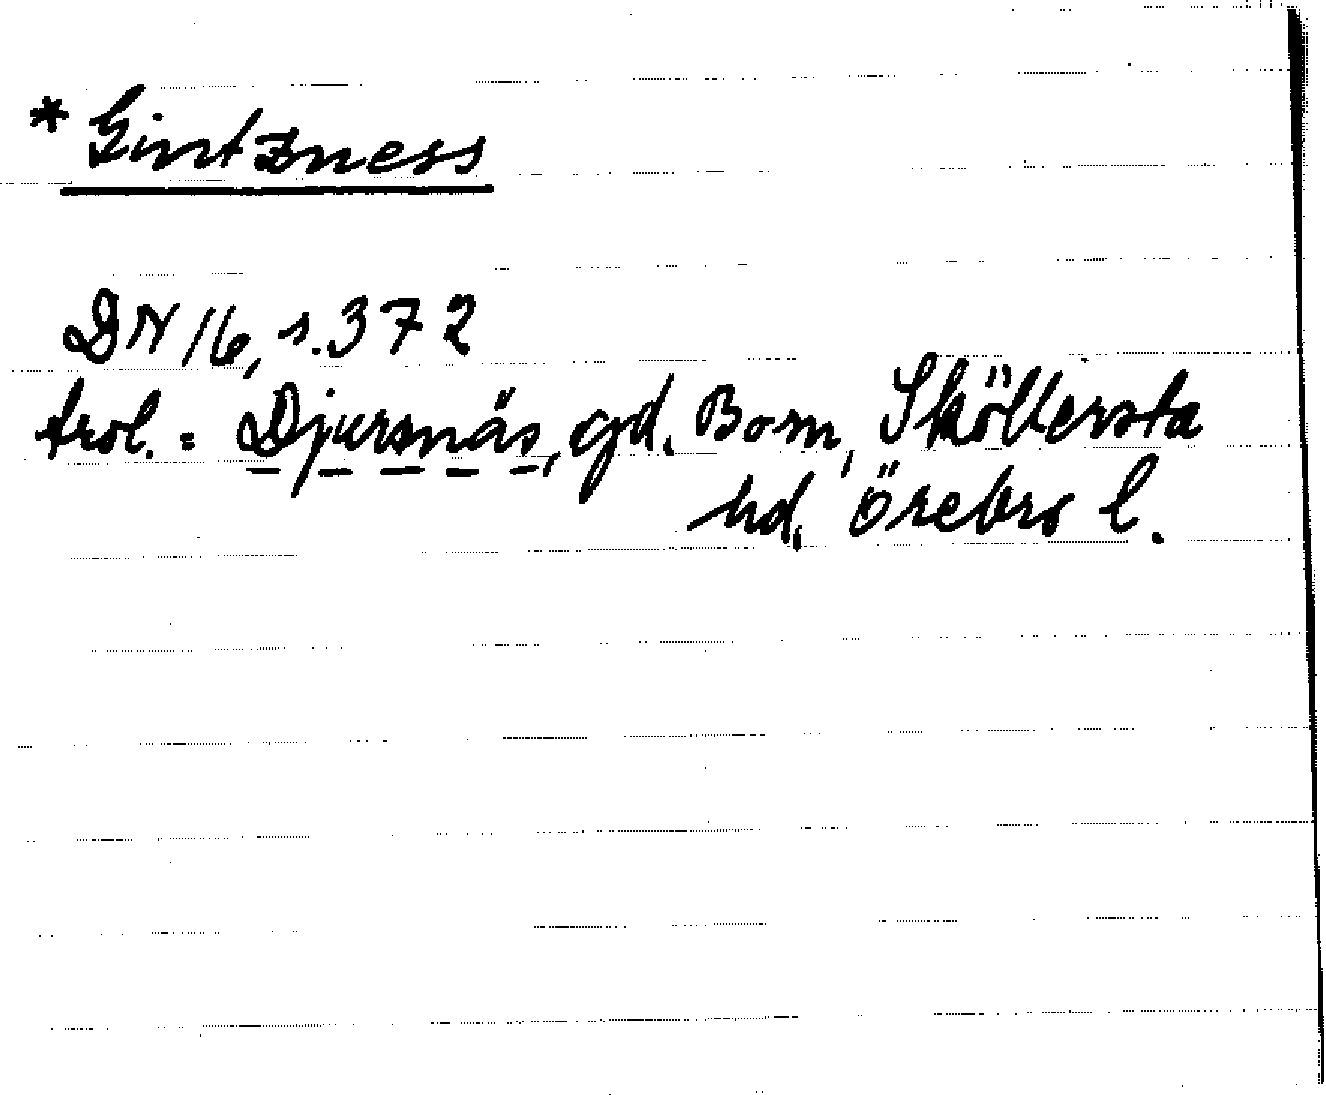 * Gintzness
DN 16, s. 372
trol. = Djursnäs, gd. Bom, Sköllersta
hd, Örebro l.